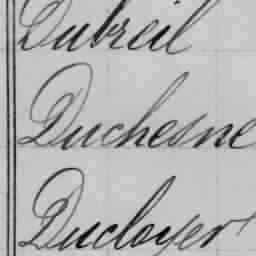 Dubreil
Duchesne
Ducloyer